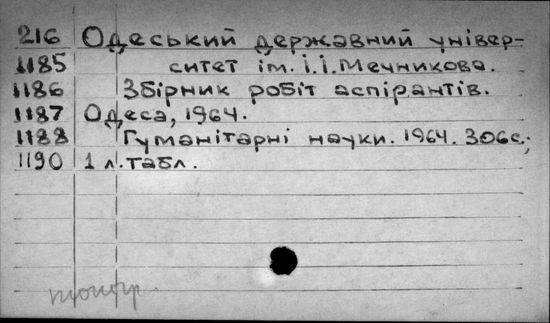 216 Одеський державний універ-
1185 ситет ім. І.І. Мечникова.
1186 Збірник робіт аспірантів.
1187 Одеса, 1964.
1188 Гуманітарні науки. 1964. 306с.;
1190 1 л. табл.